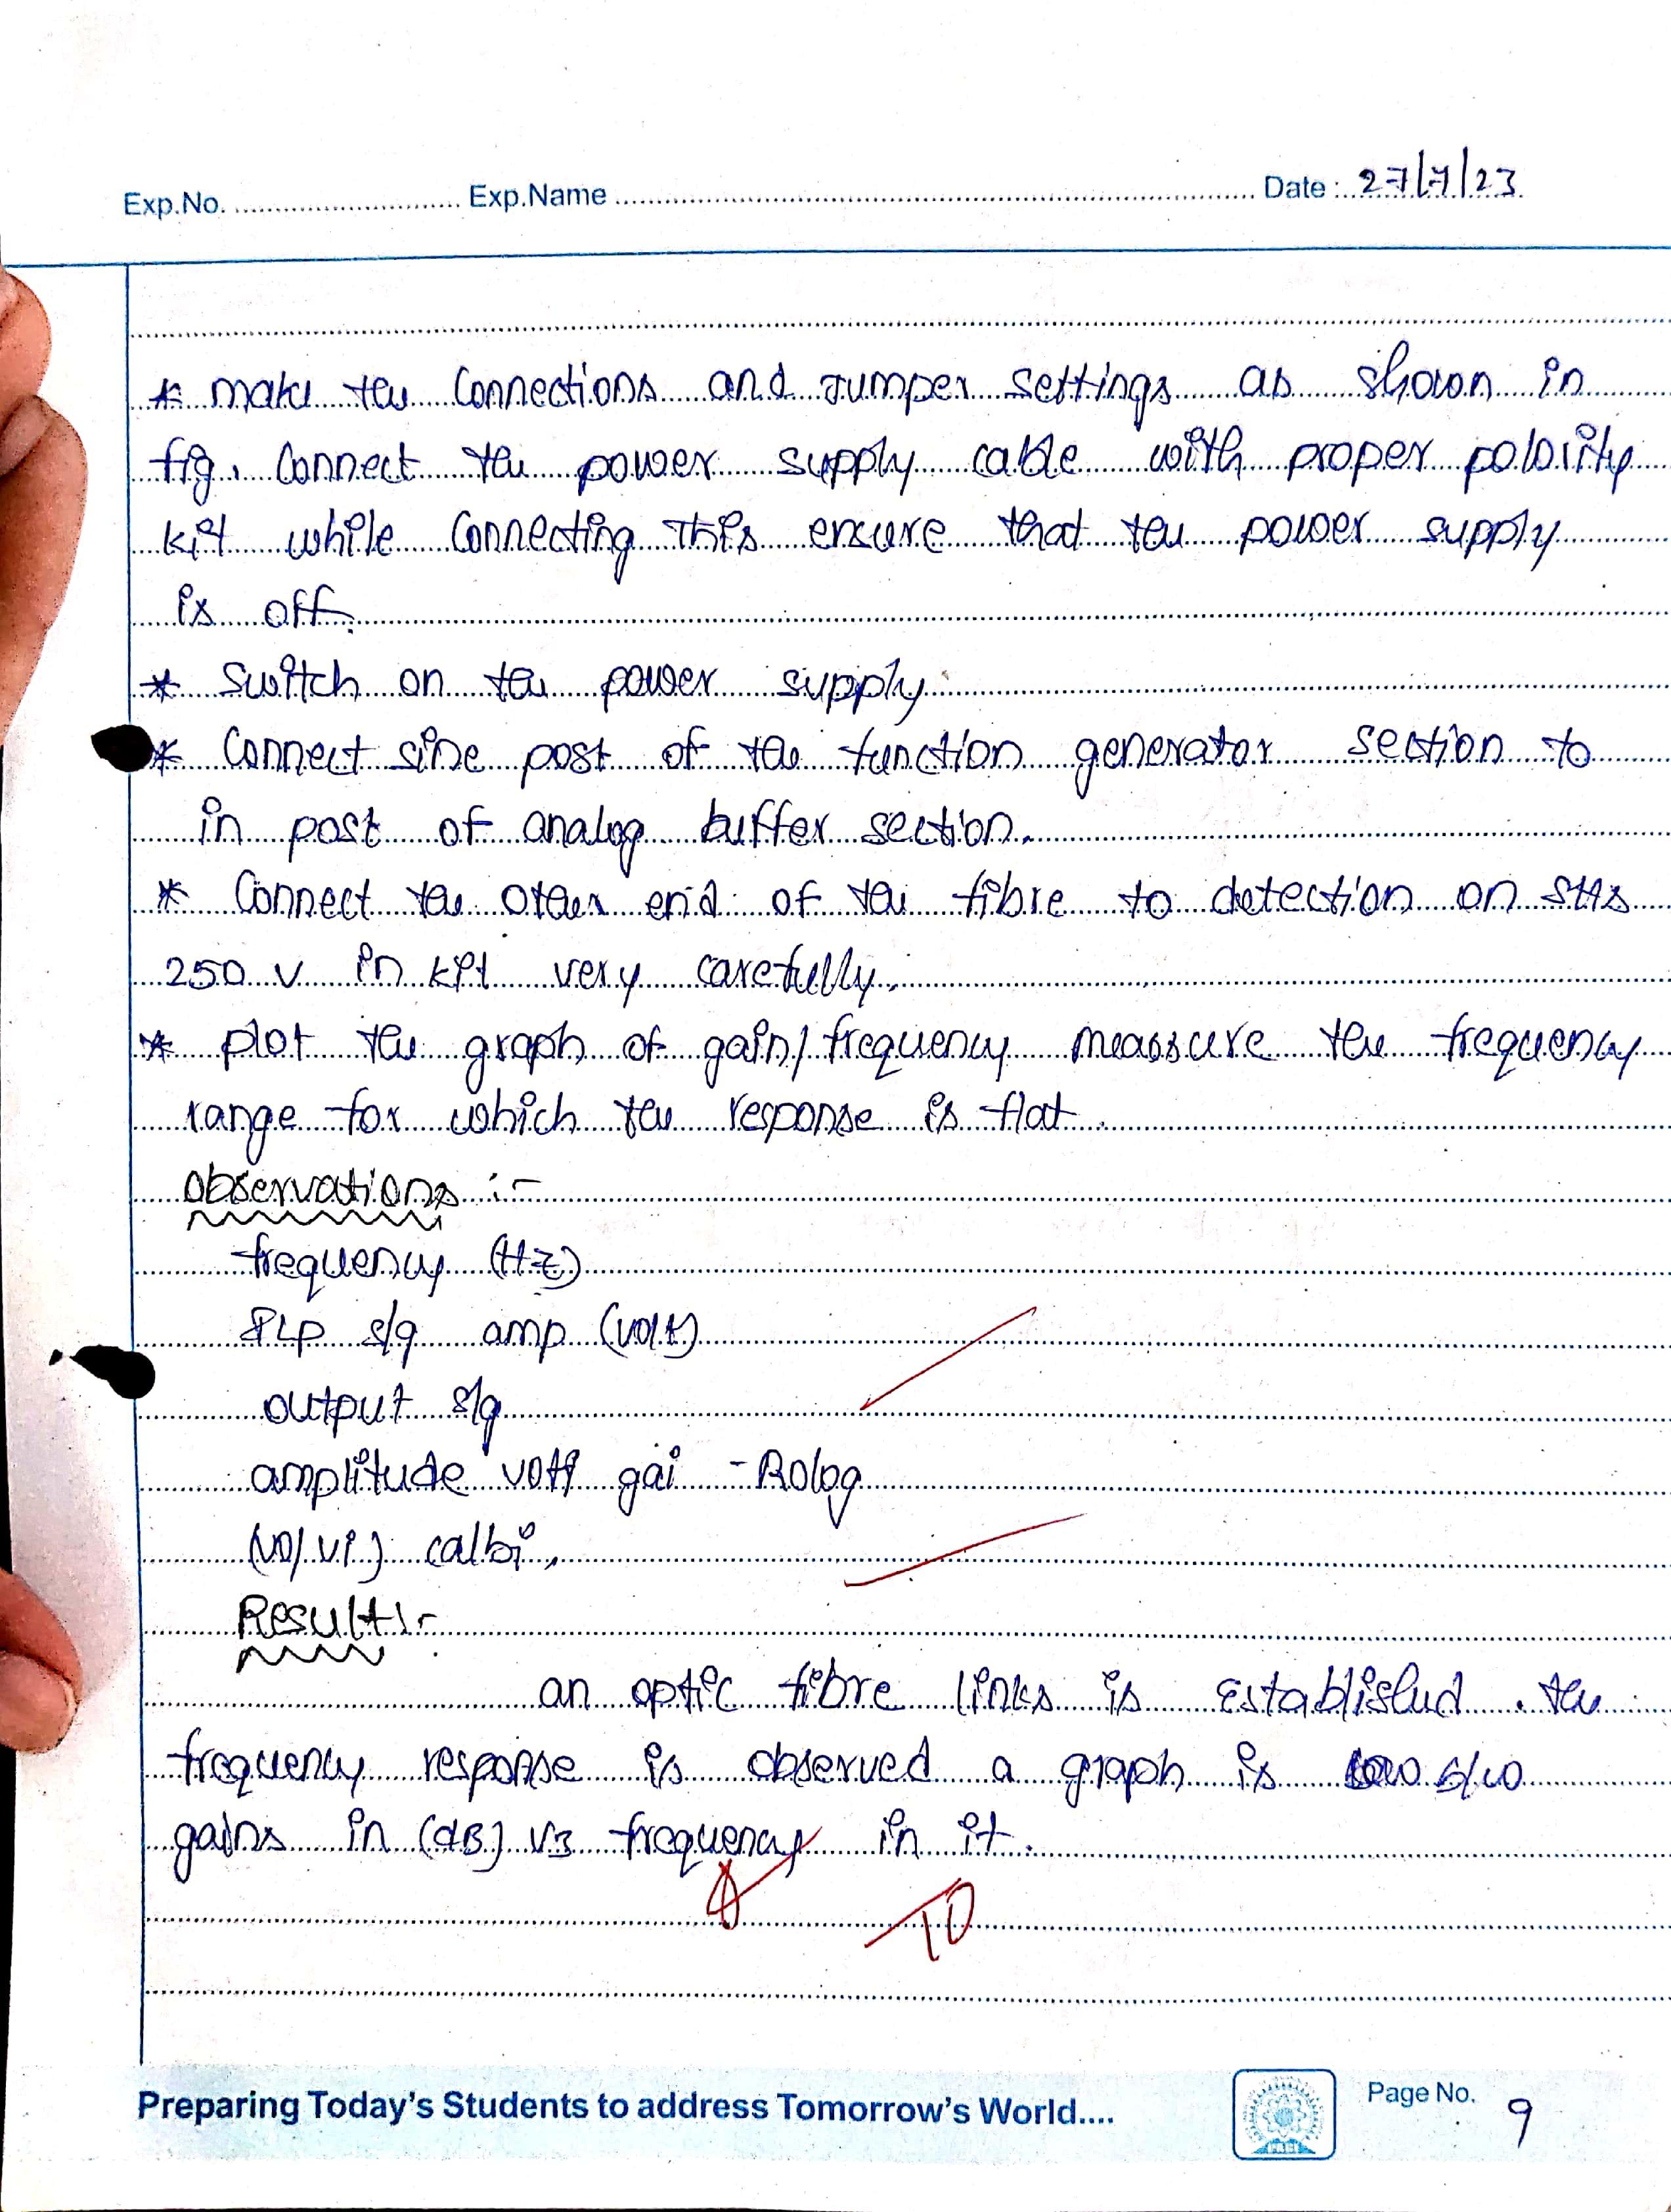 Exp.No. Exp.Name Date : 27/7/23
* make the connections and Jumper settings as shown in
fig. Connect the power supply cable with proper polarity
kit while connecting This ensure that the power supply
is off.
* switch on the power supply
* Connect sine post of the function generator section to
in post of analog buffer section.
* Connect the other end of the fibre to detection on
250 V in kit very carefully.
* plot the graph of gain/frequency meassure the frequency
range for which the response is flat.
observations :-
frequency (Hz)
s/g amp (volt)
output s/g
amplitude gai -
(VO/Vi)
Result :-
an optic fibre links is Established . the
frequency response is observed a graph is
gains in (dB) Vs frequency in it.
10
Preparing Today's Students to address Tomorrow's World....
Page No. 9